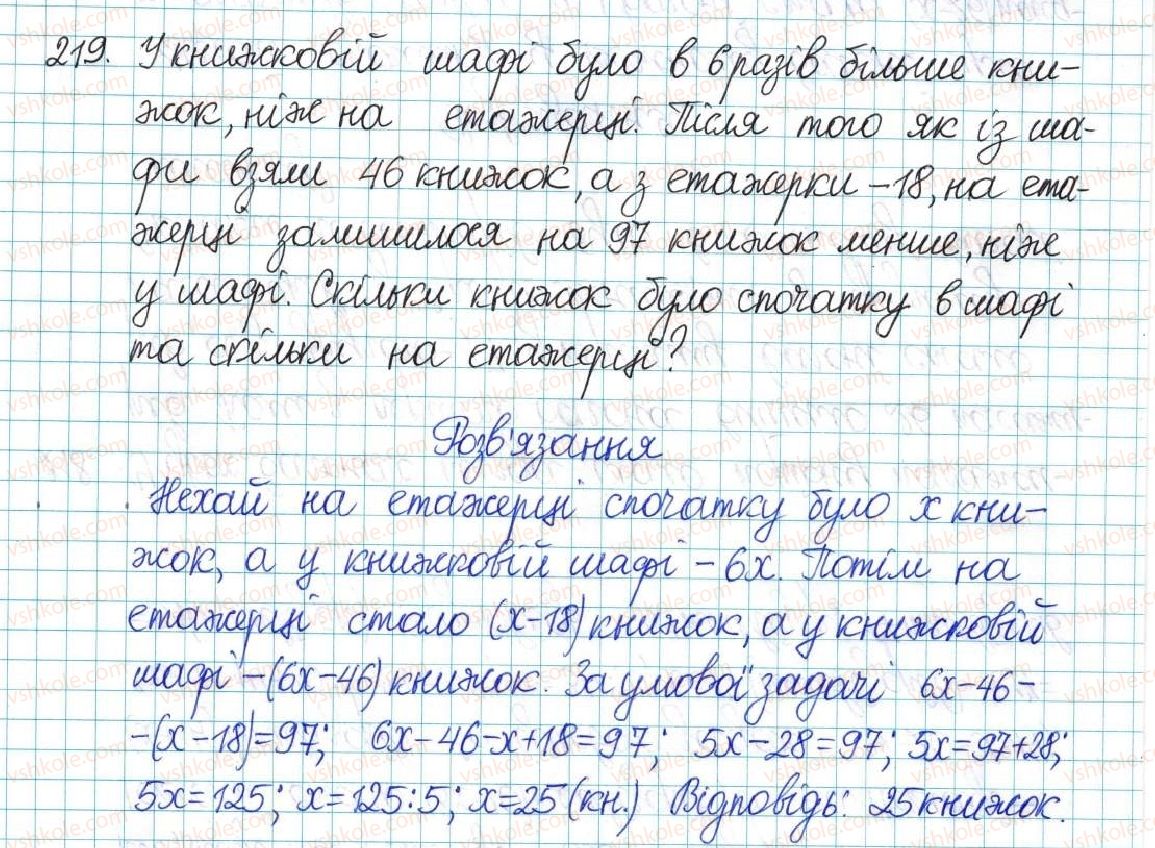 219. У книжковій шафі було в 6 разів більше кни-
жок, ніж на етажерці. Після того як із ша-
фи взяли 46 книжок, а з етажерки - 18, на ета-
жерці залишилося на 97 книжок менше, ніж
у шафі. Скільки книжок було спочатку в шафі
та скільки на етажерці?
Розв'язання
Нехай на етажерці спочатку було х кни-
жок, а у книжковій шафі - 6х. Потім на
етажерці стало (х-18) книжок, а у книжковій
шафі - (6х-46) книжок. За умової задачі 6х-46-
-(х-18)=97; 6х-46-х+18=97; 5х-28=97; 5х=97+28;
5х=125; х=125:5; х=25 (кн.) Відповідь: 25 книжок.